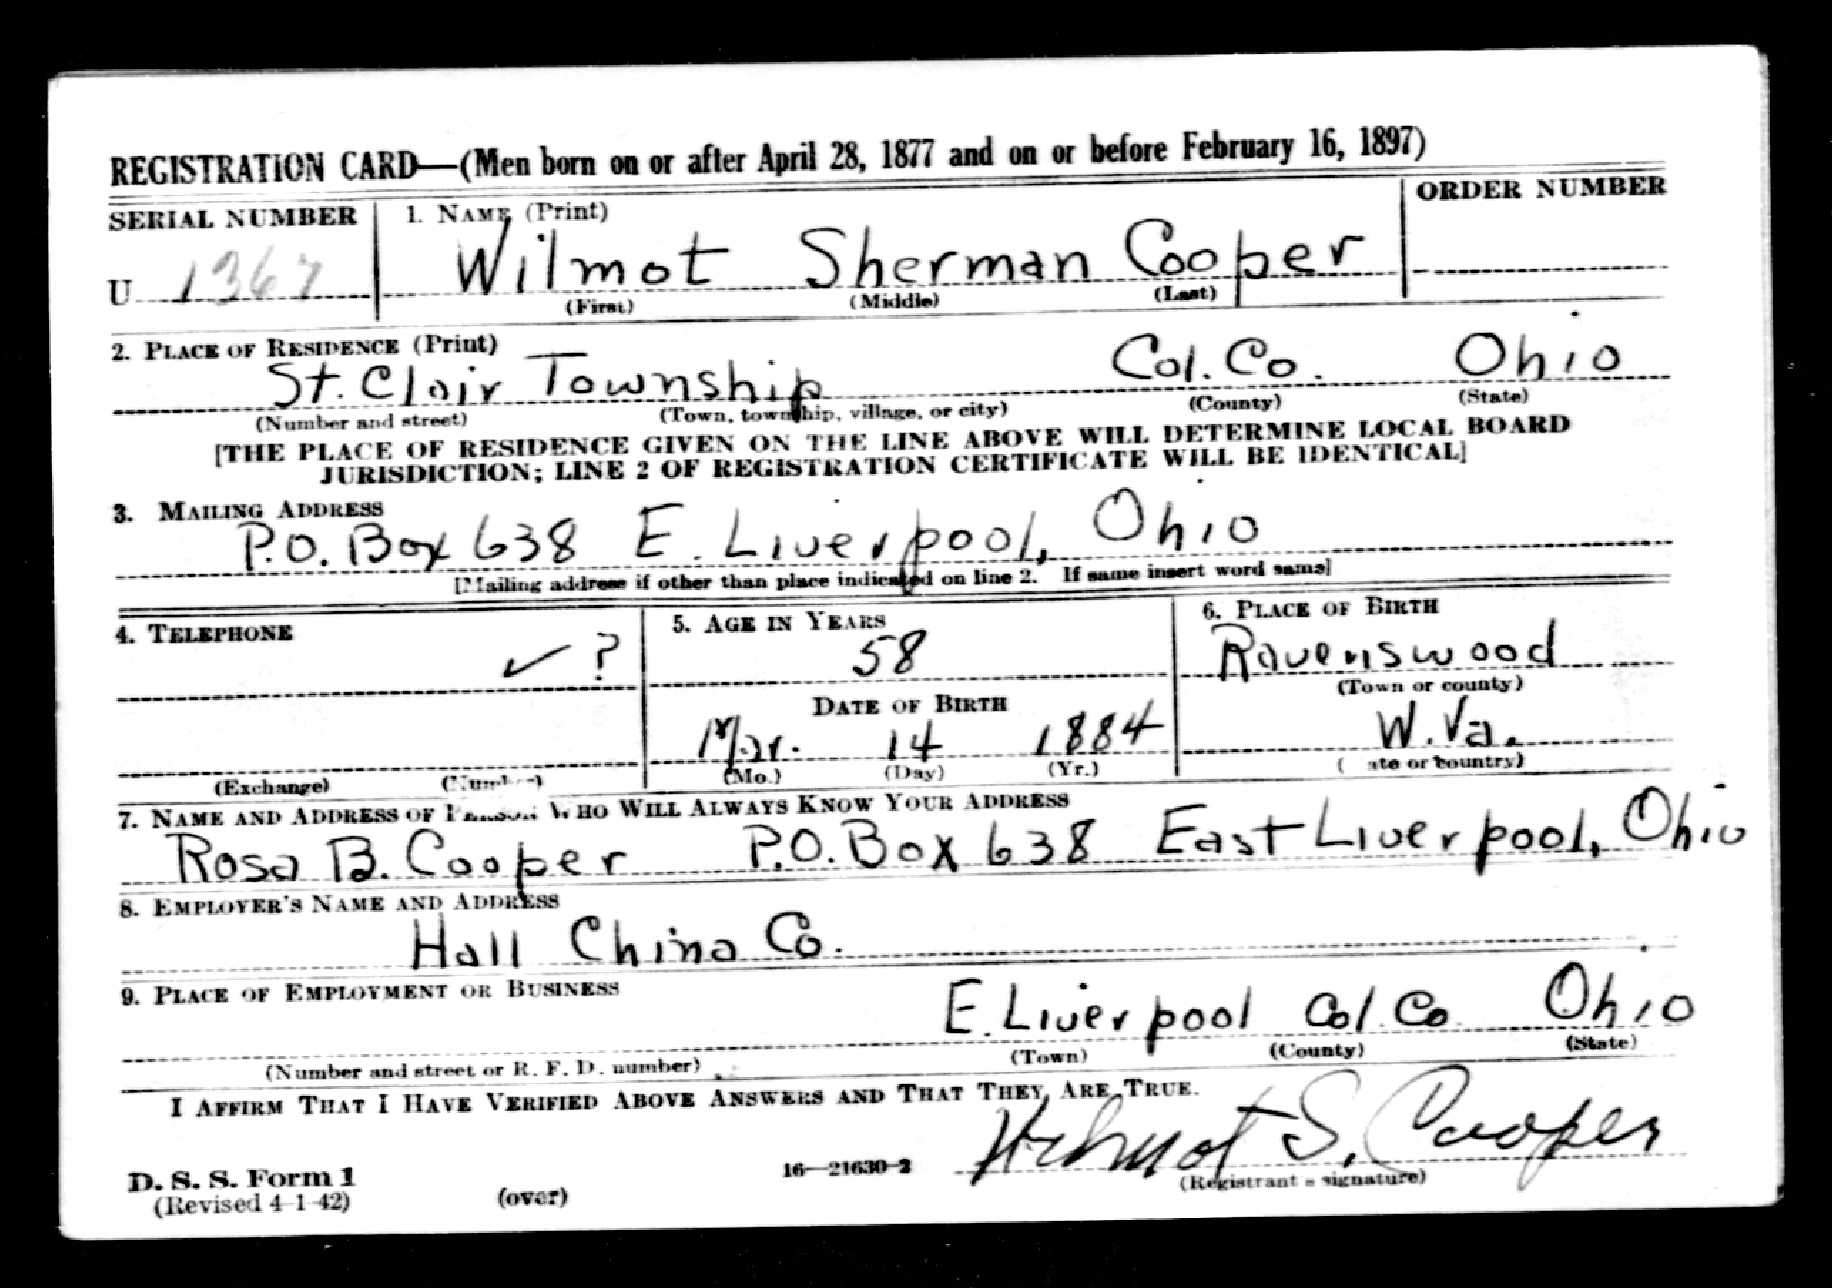 REGISTRATION CARD—(Men born on or after April 28, 1877 and on or before February 16, 1897)
SERIAL NUMBER
1. NAME (Print)
ORDER NUMBER
U 1367
Wilmot Sherman Cooper
(First) (Middle) (Last)
2. PLACE OF RESIDENCE (Print)
St. Clair Township Col. Co. Ohio
(Number and street) (Town, township, village, or city) (County) (State)
[THE PLACE OF RESIDENCE GIVEN ON THE LINE ABOVE WILL DETERMINE LOCAL BOARD
JURISDICTION; LINE 2 OF REGISTRATION CERTIFICATE WILL BE IDENTICAL]
3. MAILING ADDRESS
P.O. Box 638 E. Liverpool, Ohio
[Mailing address if other than place indicated on line 2. If same insert word same]
4. TELEPHONE
✓ ?
(Exchange) (Number)
5. AGE IN YEARS
58
DATE OF BIRTH
Mar. 14 1884
(Mo.) (Day) (Yr.)
6. PLACE OF BIRTH
Ravenswood
(Town or county)
W. Va.
( ate or country)
7. NAME AND ADDRESS OF PERSON WHO WILL ALWAYS KNOW YOUR ADDRESS
Rosa B. Cooper P.O. Box 638 East Liverpool, Ohio
8. EMPLOYER'S NAME AND ADDRESS
Hall China Co.
9. PLACE OF EMPLOYMENT OR BUSINESS
E. Liverpool Col. Co. Ohio
(Number and street or R. F. D. number) (Town) (County) (State)
I AFFIRM THAT I HAVE VERIFIED ABOVE ANSWERS AND THAT THEY ARE TRUE.
Wilmot S. Cooper
D. S. S. Form 1
(Revised 4-1-42) (over) 16—21630-2 (Registrant's signature)